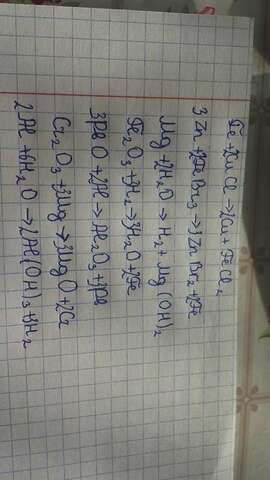 Fe + 2CuCl → 2Cu + FeCl₂
3Zn + 2FeBr₃ → 3ZnBr₂ + 2Fe
Mg + 2H₂O → H₂ + Mg(OH)₂
Fe₂O₃ + 3H₂ → 3H₂O + 2Fe
3PbO + 2Al → Al₂O₃ + 3Pb
Cr₂O₃ + 3Mg → 3MgO + 2Cr
2Al + 6H₂O → 2Al(OH)₃ + 3H₂